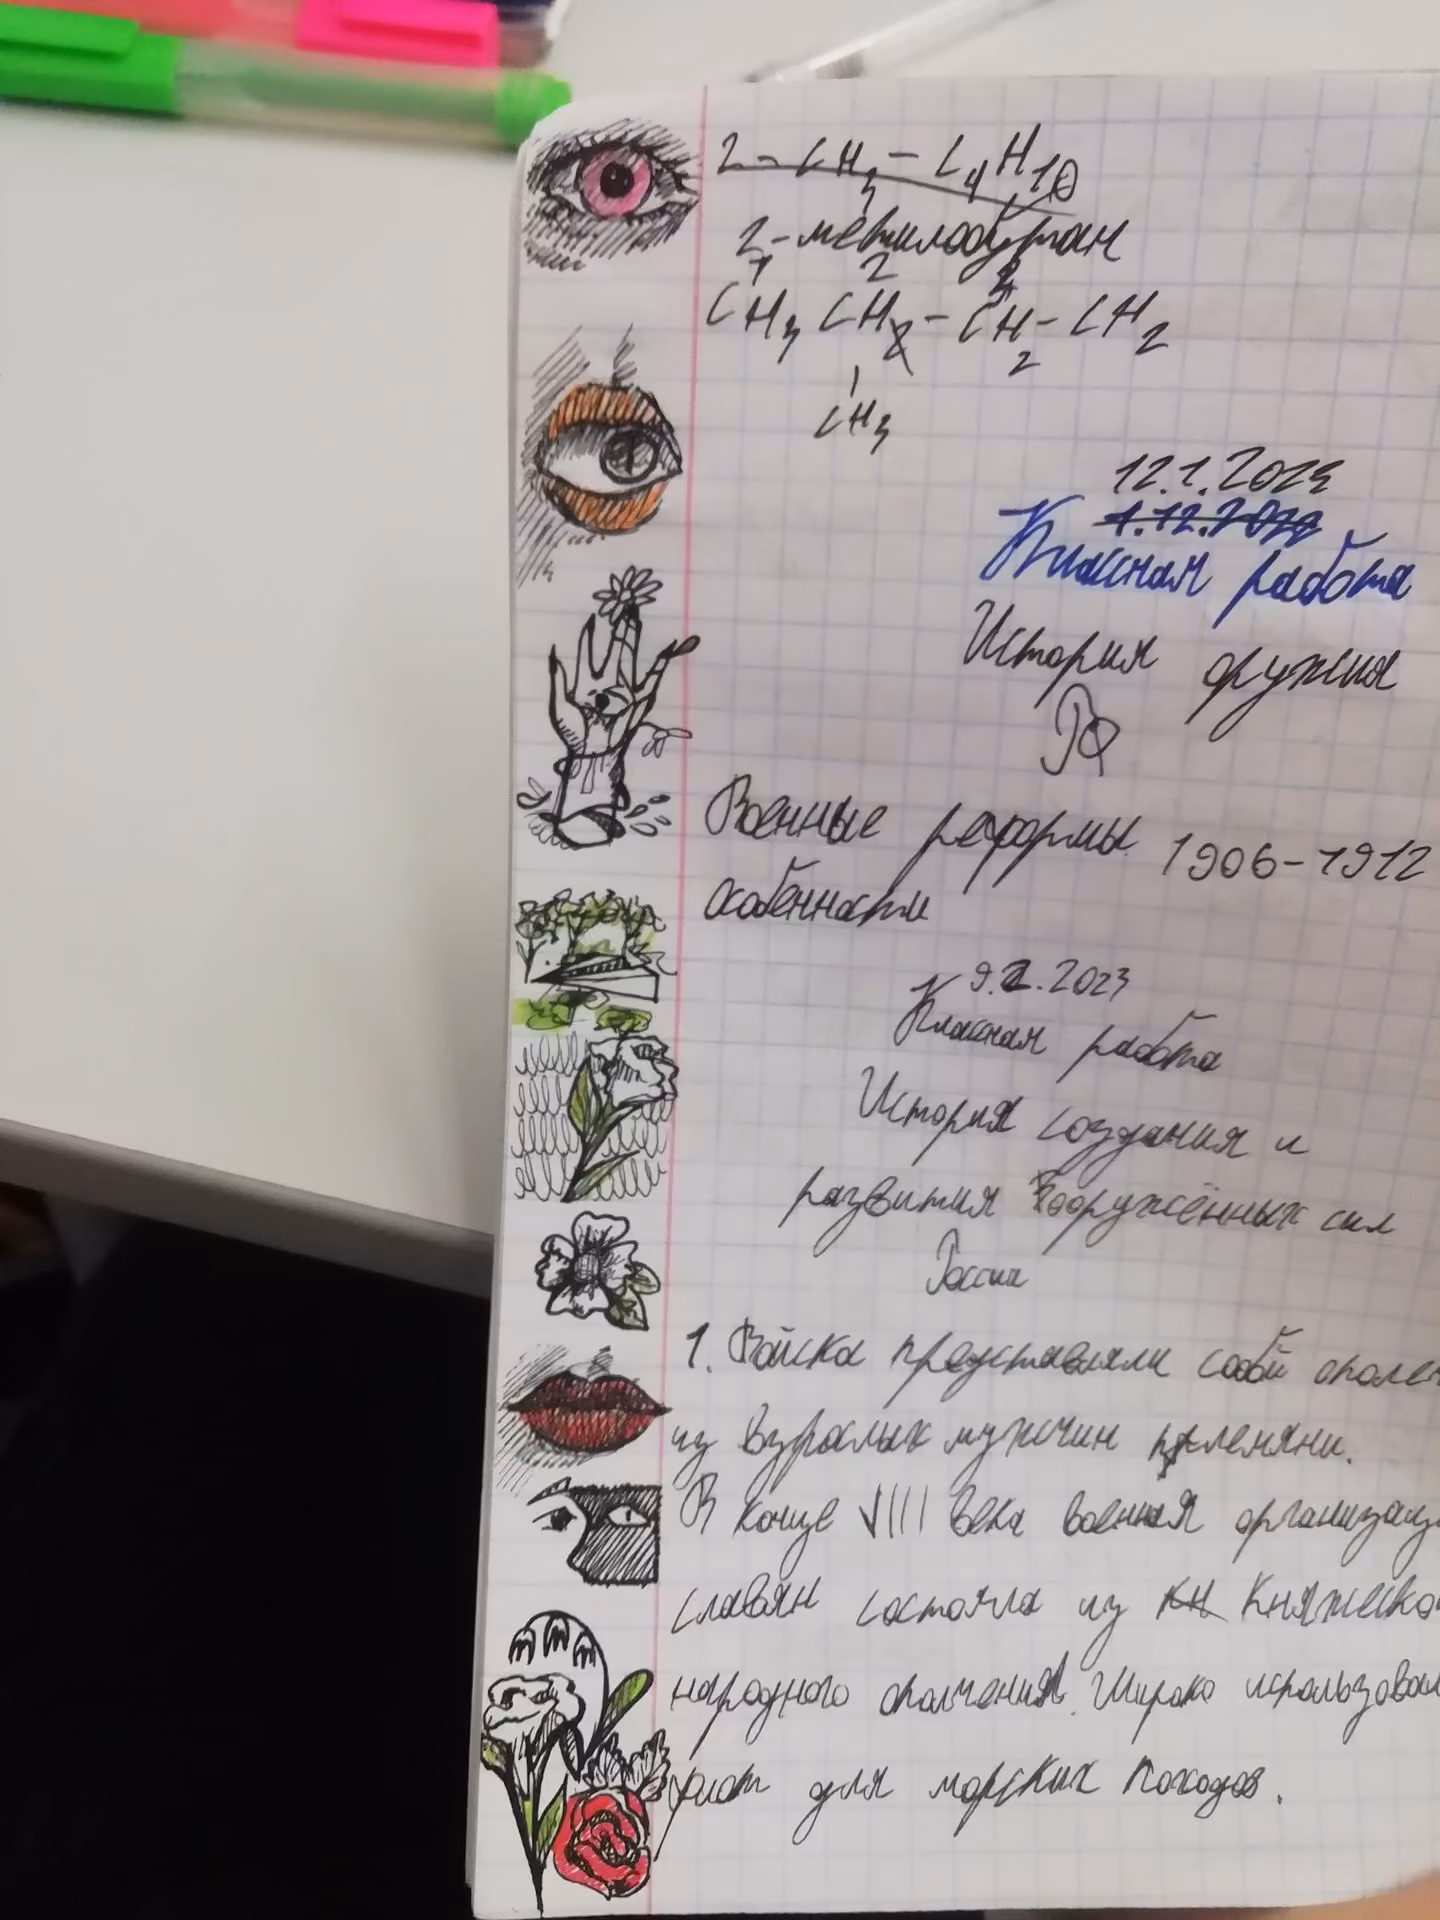 2 - CH3 - C4H10
2-метилобутан
1 2 3
CH3 CH2 - CH2 - CH2
CH3
12.1.2023
1.12.2022
Классная работа
История оружия
РФ
Военные реформы 1906-1912
особенности
9.2.2023
Классная работа
История создания и
развития Вооружённых сил
России
1. Войска представляли собой ополен
из взрослых мужчин племяни.
В конце VIII века военная организац
славян состояла из кн княжеско
народного ополчения. Широко использовал
флот для морских походов.